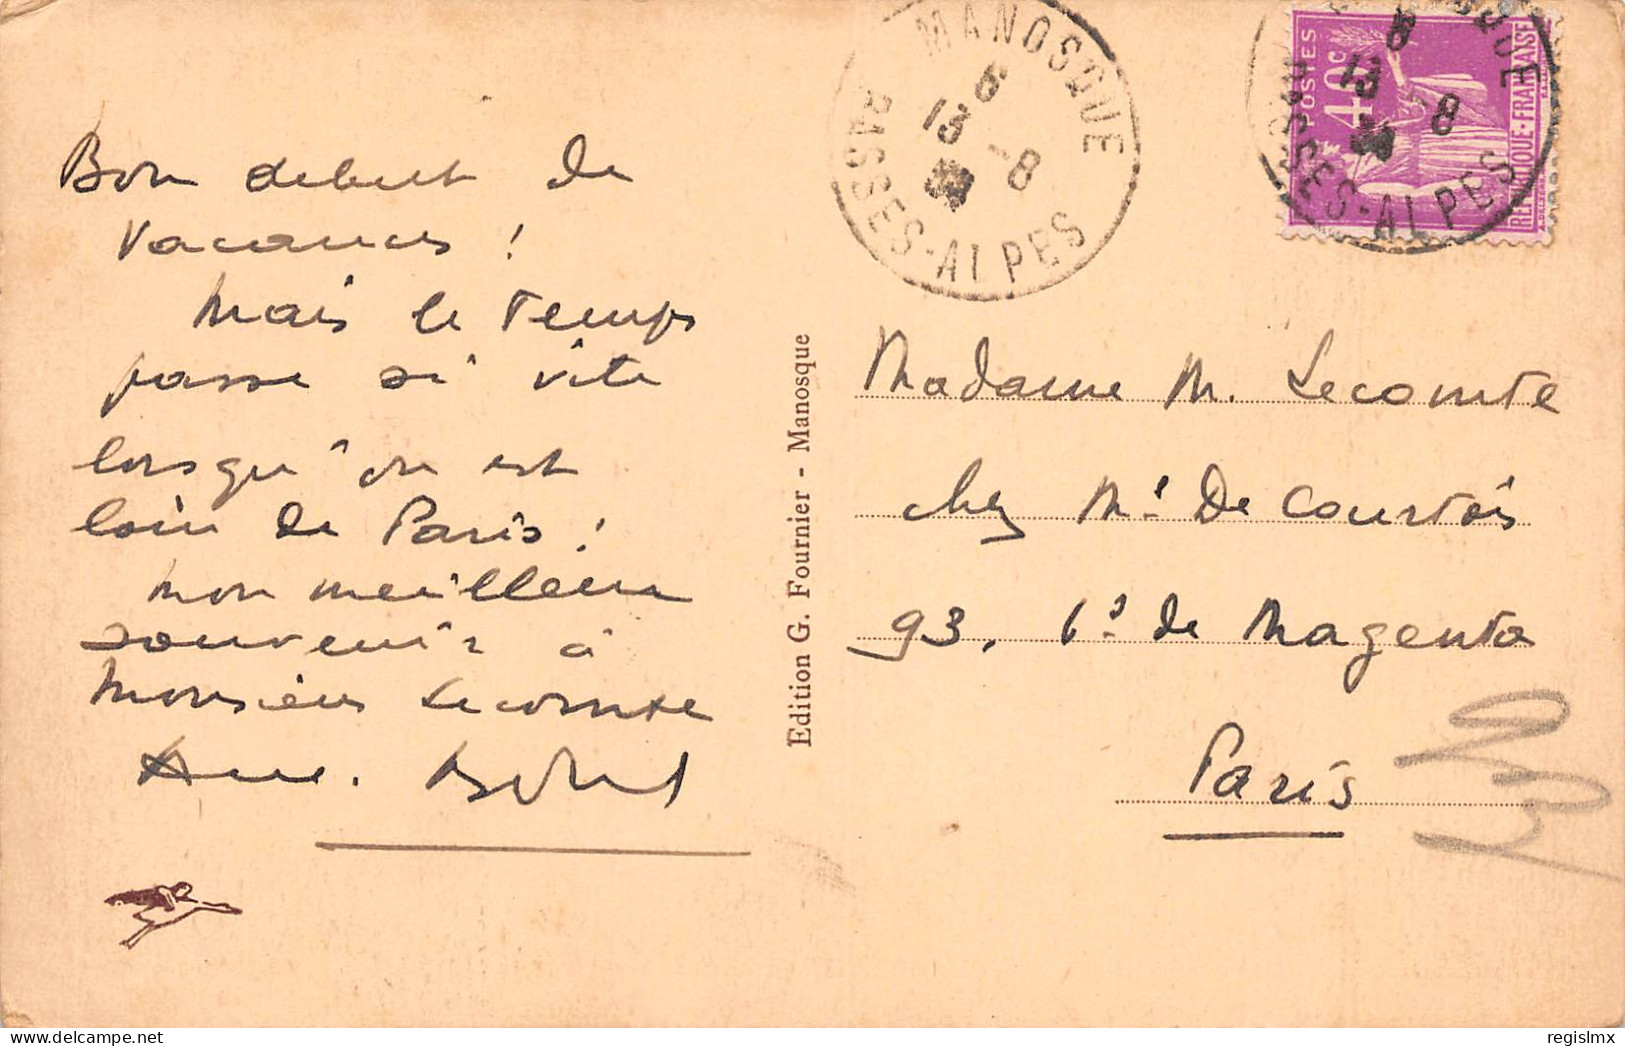 Bon debut de
Vacances !
Mais le Temps
passe si vite
lorsqu'on est
loin de Paris !
mon meilleur
souvenir à
Monsieur Lecomte
Edition G. Fournier - Manosque
MANOSQUE
6
13 -8
BASSES-ALPES
MANOSQUE
6
13 -8
BASSES-ALPES
POSTES
40c
REPUBLIQUE-FRANÇAISE
Madame M. Lecomte
chez Mr De Courtois
93, Bd de Magenta
Paris
regislmx